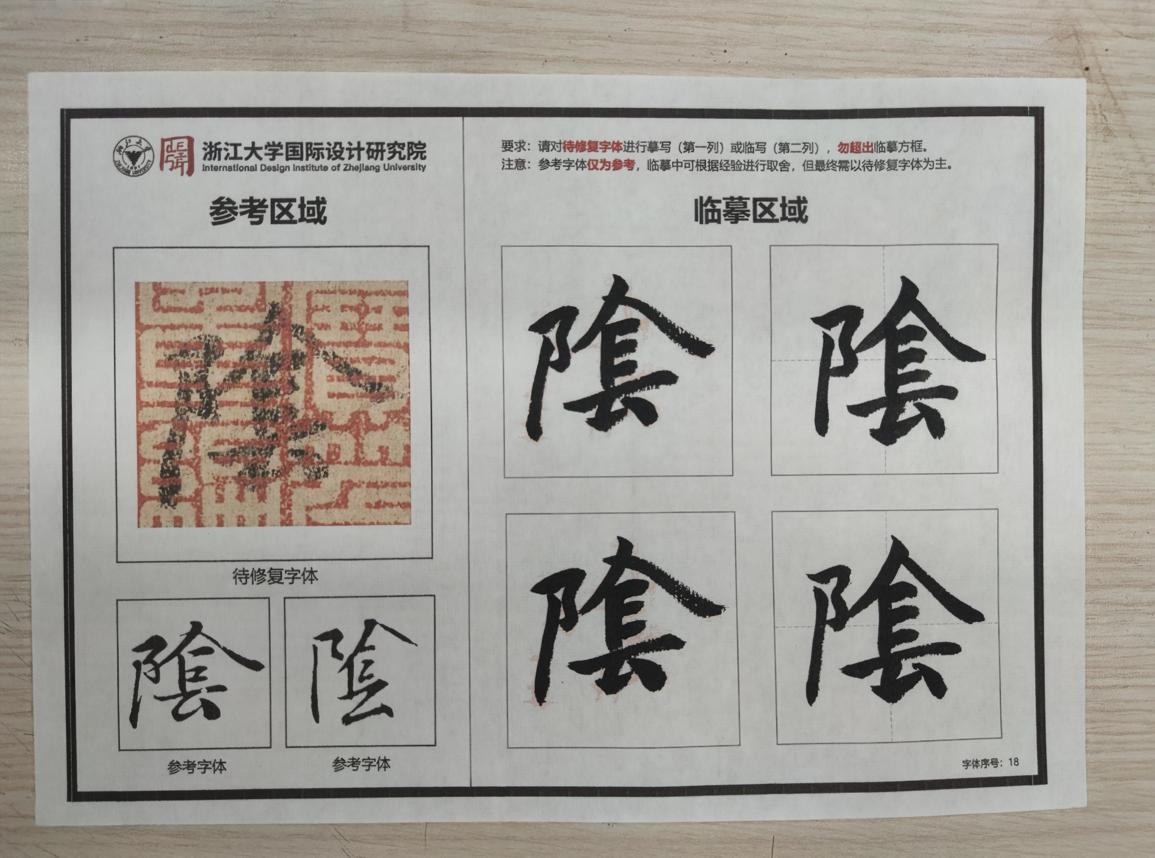 浙江大学国际设计研究院
International Design Institute of Zhejiang University
参考区域
待修复字体
陰 陰
参考字体 参考字体
要求：请对待修复字体进行摹写（第一列）或临写（第二列），勿超出临摹方框。
注意：参考字体仅为参考，临摹中可根据经验进行取舍，但最终需以待修复字体为主。
临摹区域
陰 陰
陰 陰
字体序号：18